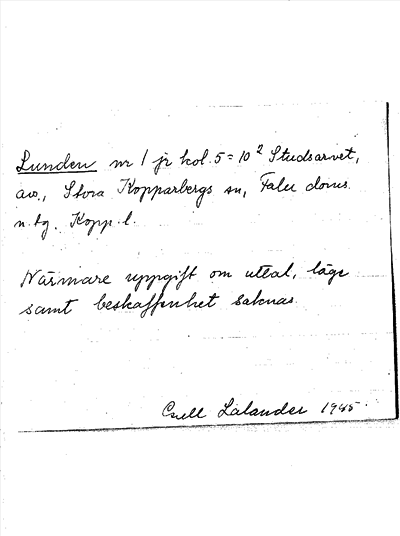 Lunden nr 1 jr kol. 5 = 10² Studsarvet,
av., Stora Kopparbergs sn, Falu doms.
n. tg. Kopp. l.
Närmare uppgift om uttal, läge
samt beskaffenhet saknas.
Lalander 1945.